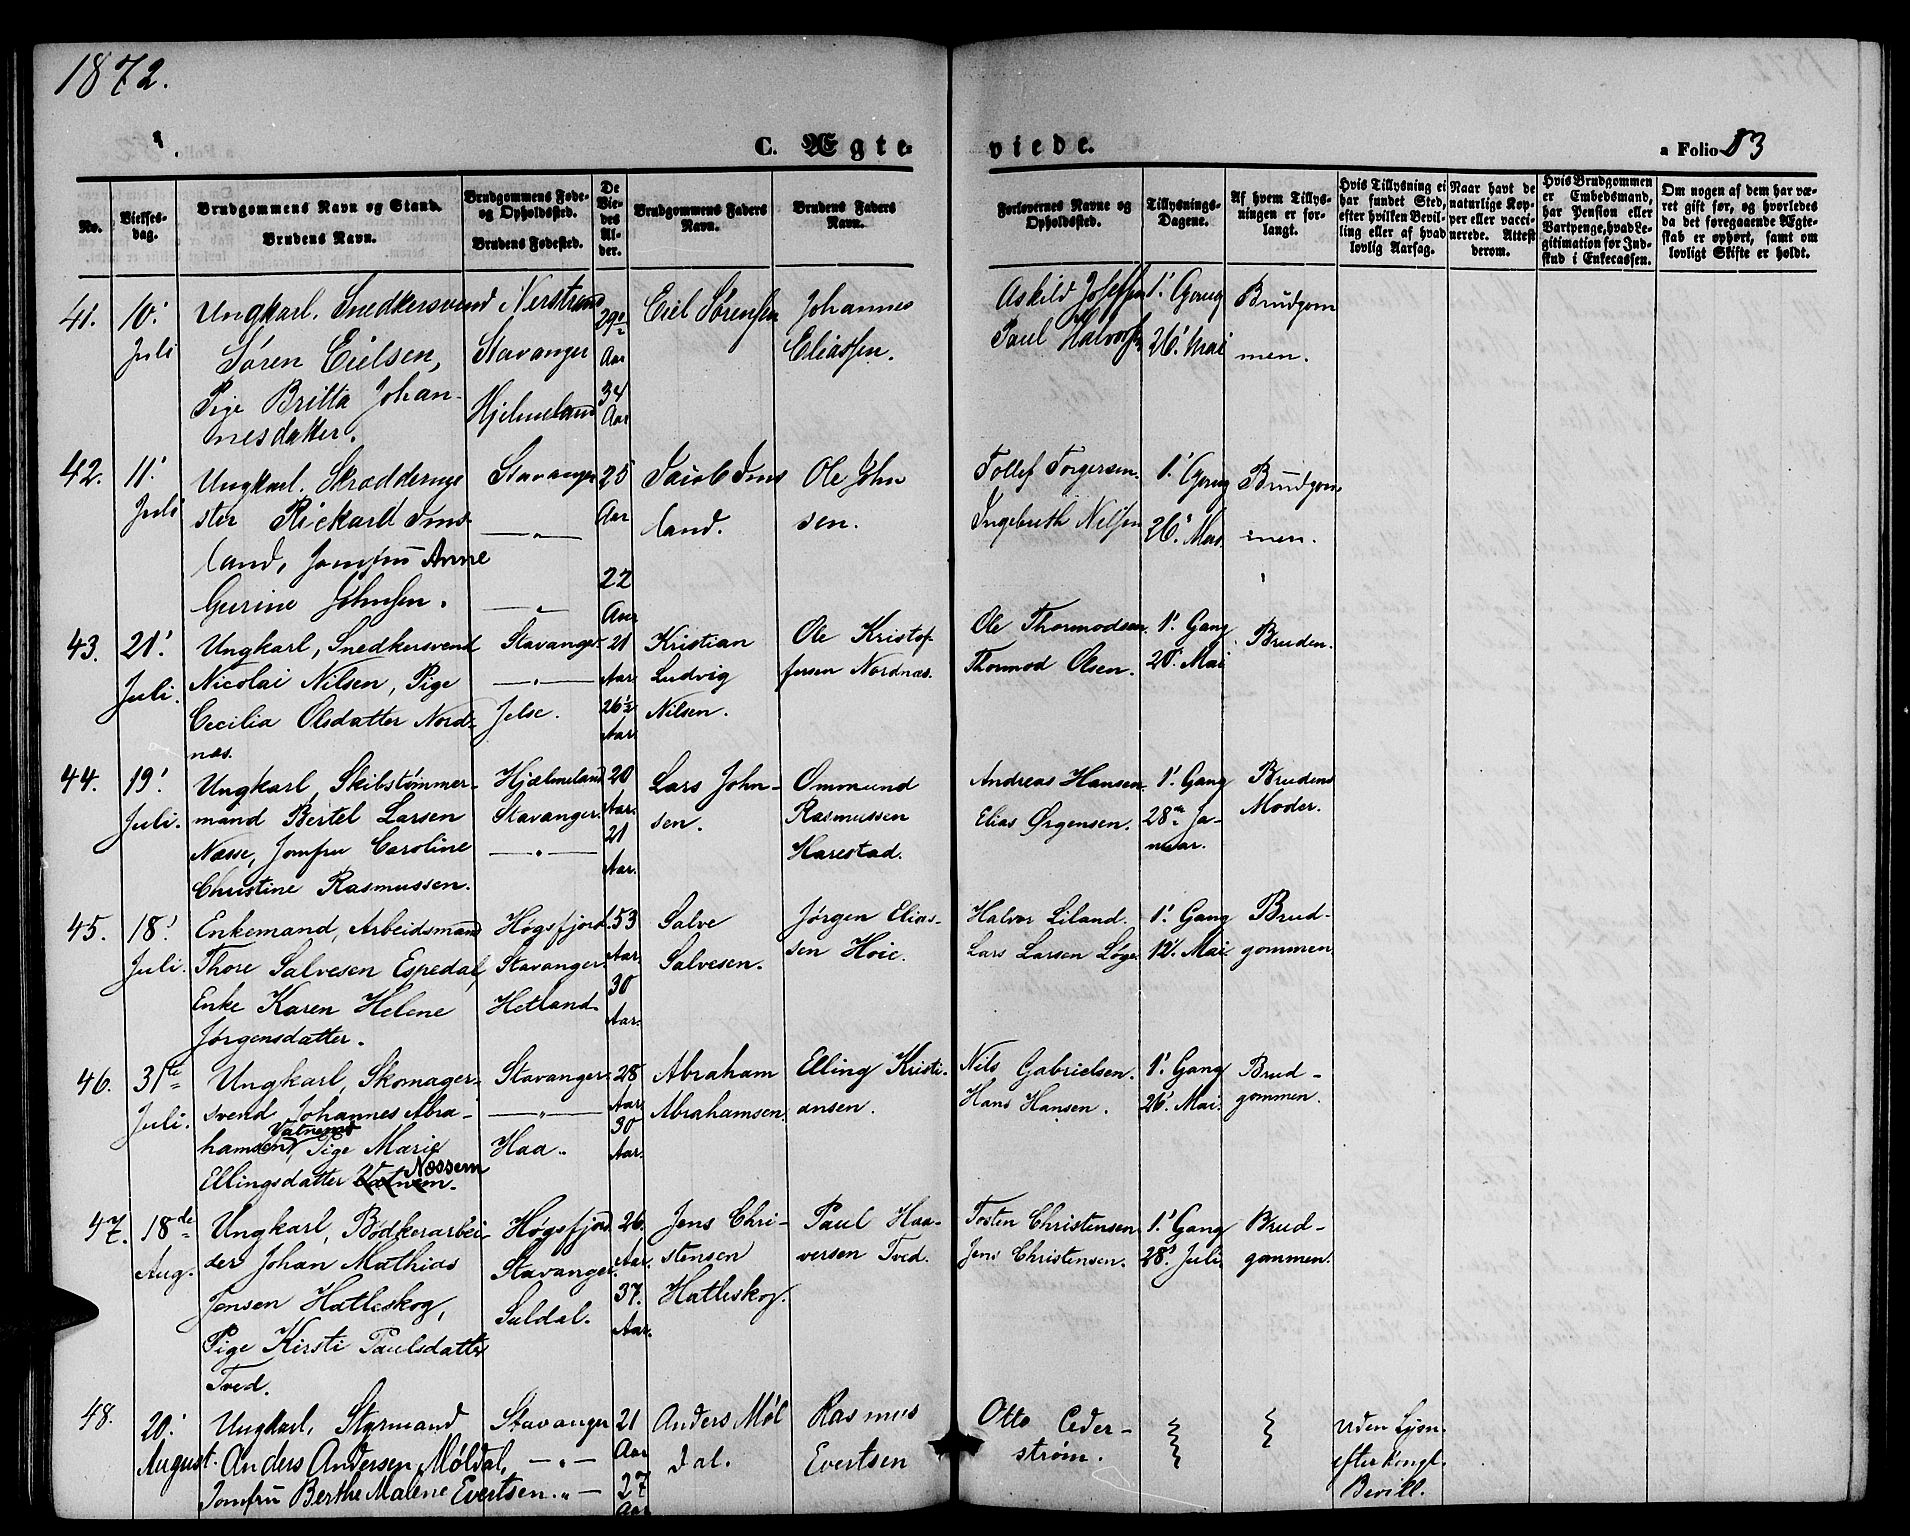 1872.
C. Ægte-
viede.
a Folio 83
No.
Vielses-dag.
Brudgommens Navn og Stand.
Brudens Navn.
Brudgommens Føde- og Opholdssted.
Brudens Fødested.
De Viedes Alder.
Brudgommens Faders Navn.
Brudens Faders Navn.
Forlovernes Navne og Opholdssted.
Tillysnings-Dagene.
Af hvem Tillysningen er forlangt.
Hvis Tillysning ei har fundet Sted, efter hvilken Bevilling eller af hvad lovlig Aarsag.
Naar havt de naturlige Kopper eller vaccinerede. Attest derom.
Hvis Brudgommen er Embedsmand, har Pension eller Vartpenge, hvad Legitimation for Indskud i Enkecassen.
Om nogen af dem har været gift før, og hvorledes da det foregaaende Ægteskab er ophørt, samt om lovligt Skifte er holdt.
41. 10' Juli
Ungkarl. Snedkersvend
Søren Eielsen,
Pige Britta Johan-
nesdatter.
Nerstrand
Stavanger
Hjelmeland
29 Aar
34 Aar
Eiel Sørensen
Johannes
Eliassen.
Askild Josefsen
Paul Halvorsen
1' Gang
26' Mai
Brudgom
men.
42. 11' Juli
Ungkarl. Skrædderme
ster Rickard Ims
land, Jomfru Anne
Gurine Johnsen.
Stavanger
— „ —
— „ —
25 Aar
22 Aar
Jacob Ims
land.
Ole John
sen.
Tollef Torgersen.
Ingebreth Nelsen
1' Gang
26' Mai.
Brudgom
men.
43. 21' Juli.
Ungkarl, Snedkersvend
Nicolai Nilsen, Pige
Cecilia Olsdatter Nord-
næs.
Stavanger.
— „ —
Jelse.
21 Aar.
26½ Aar.
Kristian
Ludvig
Nilsen.
Ole Kristof
fersen Nordnæs.
Ole Thormodsen.
Thormod Olsen.
1' Gang
20' Mai
Bruden.
44. 19' Juli.
Ungkarl, Skibstømmer-
mand Bertel Larsen
Næsse, Jomfru Caroline
Christine Rasmussen.
Hjælmeland
Stavanger.
— „ —
20 Aar.
21 Aar.
Lars John-
sen.
Ommund
Rasmussen
Harestad.
Andreas Hansen.
Elias Ørgensen.
1' Gang
28de Ja-
nuar.
Brudens
Moder.
45. 18' Juli.
Enkemand, Arbeidsmand
Thore Salvesen Espedal,
Enke Karen Helene
Jørgensdatter.
Høgsfjord.
Stavanger.
Hetland.
53 Aar.
30 Aar.
Salve
Salvesen.
Jørgen Elias-
sen Hoie.
Halvor Liland.
Lars Larsen Løge
1' Gang
12' Mai
Brud-
gommen
46. 31te Juli.
Ungkarl, Skomager-
svend Johannes Abra-
hamsen Vatnem, Pige Marie
Ellingsdatter Vatnem. Næssem
Stavanger.
— „ —
Haa.
28 Aar.
30 Aar.
Abraham
Abrahamsen
Elling Kristi-
ansen.
Nils Gabrielsen.
Hans Hansen.
1' Gang
26' Mai.
Brud-
gommen.
47. 18de Aug.
Ungkarl, Bødkerarbei-
der Johan Mathias
Jensen Hatleskog,
Pige Kirsti Paulsdatter
Tved.
Høgsfjord
Stavanger.
Suldal.
26. Aar.
37. Aar.
Jens Chri-
stensen
Hatleskog.
Paul Haa-
versen Tved.
Tosten Christensen
Jens Christensen.
1' Gang
28' Juli
Brud-
gommen.
48. 20' August.
Ungkarl, Styrmand
Anders Andersen Møldal,
Jomfru Berthe Malene Evertsen.
Stavanger
— „ —
„ —
21 Aar
27 Aar
Anders Møl
dal.
Rasmus
Evertsen
Otto Ceder-
strøm.
uden Lysn.
efter Kongl.
Bevill.